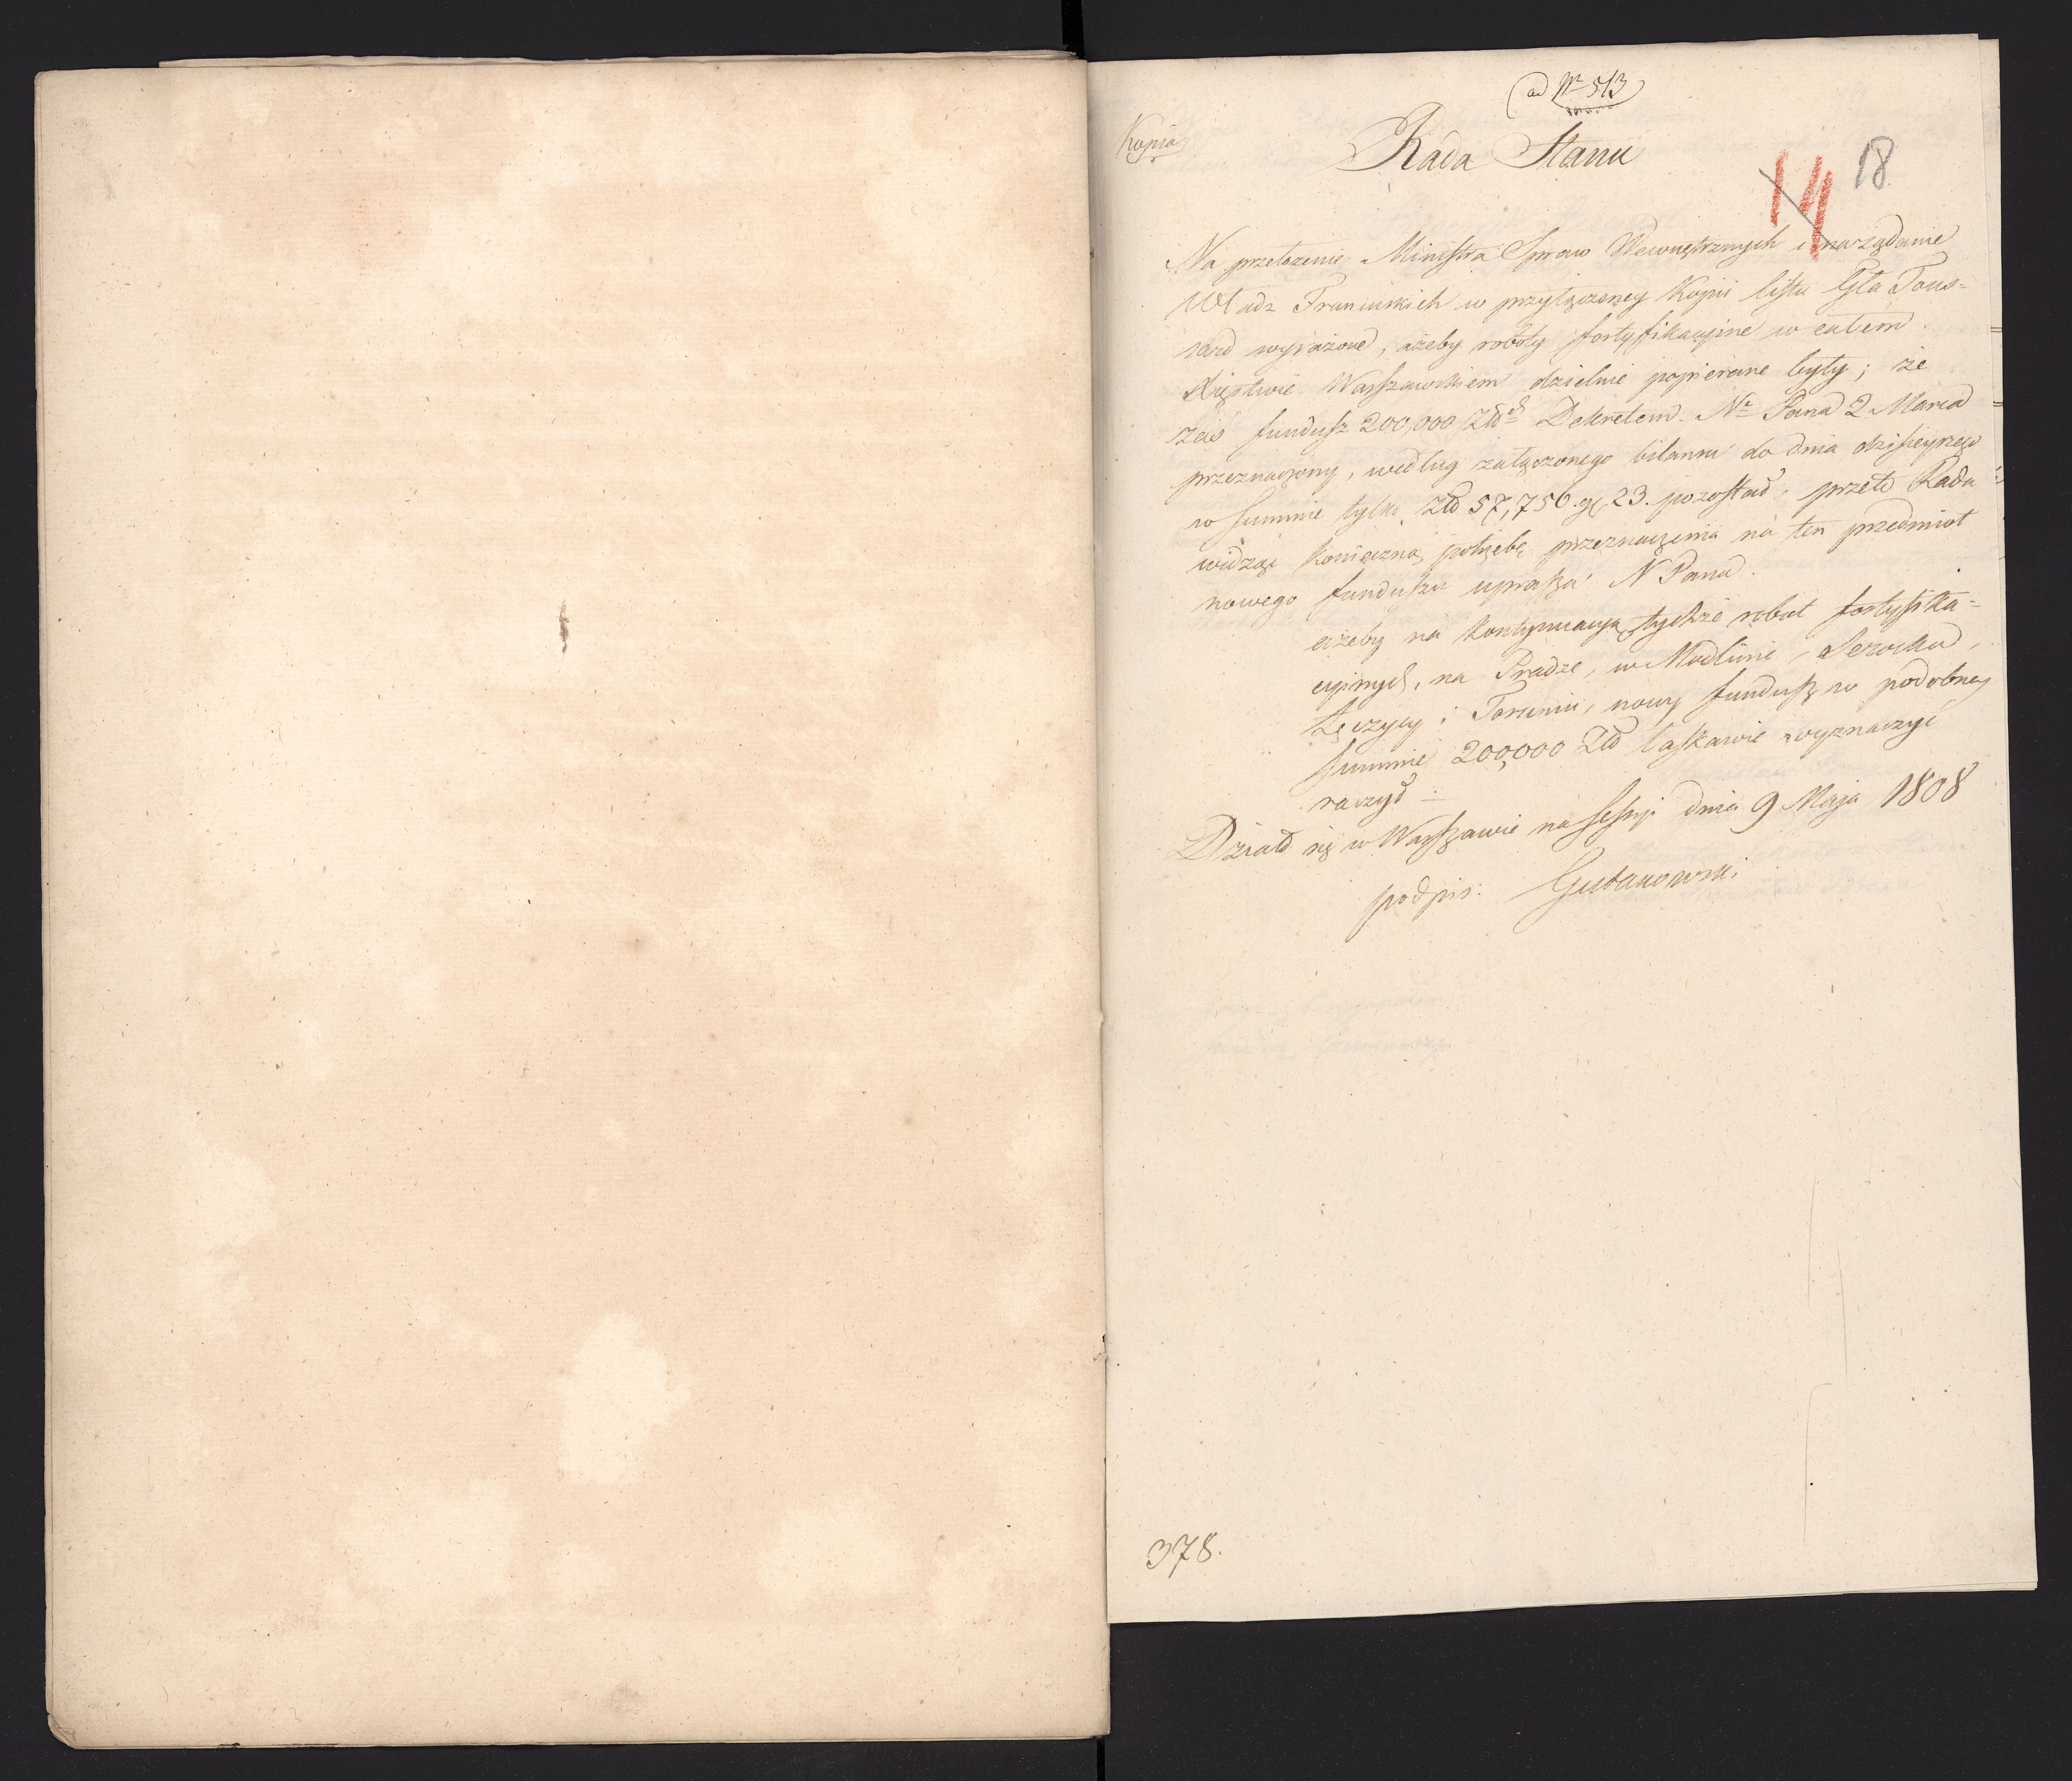 ad Nr 513
Kopia
Rada Stanu
14 18
Na przełożenie Ministra Spraw Wewnętrznych i na żądanie
Władz Francuskich w przyłączoney Kopii listu Gła Tous=
sard wyrażone, ażeby roboty fortyfikacyine w całem
Xięstwie Warszawskiem dzielnie popierane były; że
zaś fundusz 200,000 Złd Dekretem Nr Pana 2 Marca
przeznaczony, według załączonego bilansu do dnia dzisieyszego
w summie tylko Złd 57,750. gr. 23. pozostał, przeto Rada
widząc konieczną potrzebę przeznaczenia na ten przedmiot
nowego funduszu uprasza N Pana.
ażeby na kontynuacyą tychże robot fortyfika=
cyinych, na Pradze, w Modlinie, Serocku,
Łęczycy i Toruniu, nowy fundusz w podobney
summie 200,000 Złd łaskawie wyznaczyć
raczył
Działo się w Warszawie na Sessyi dnia 9 Maja 1808
podpis: Gutakowski
378.